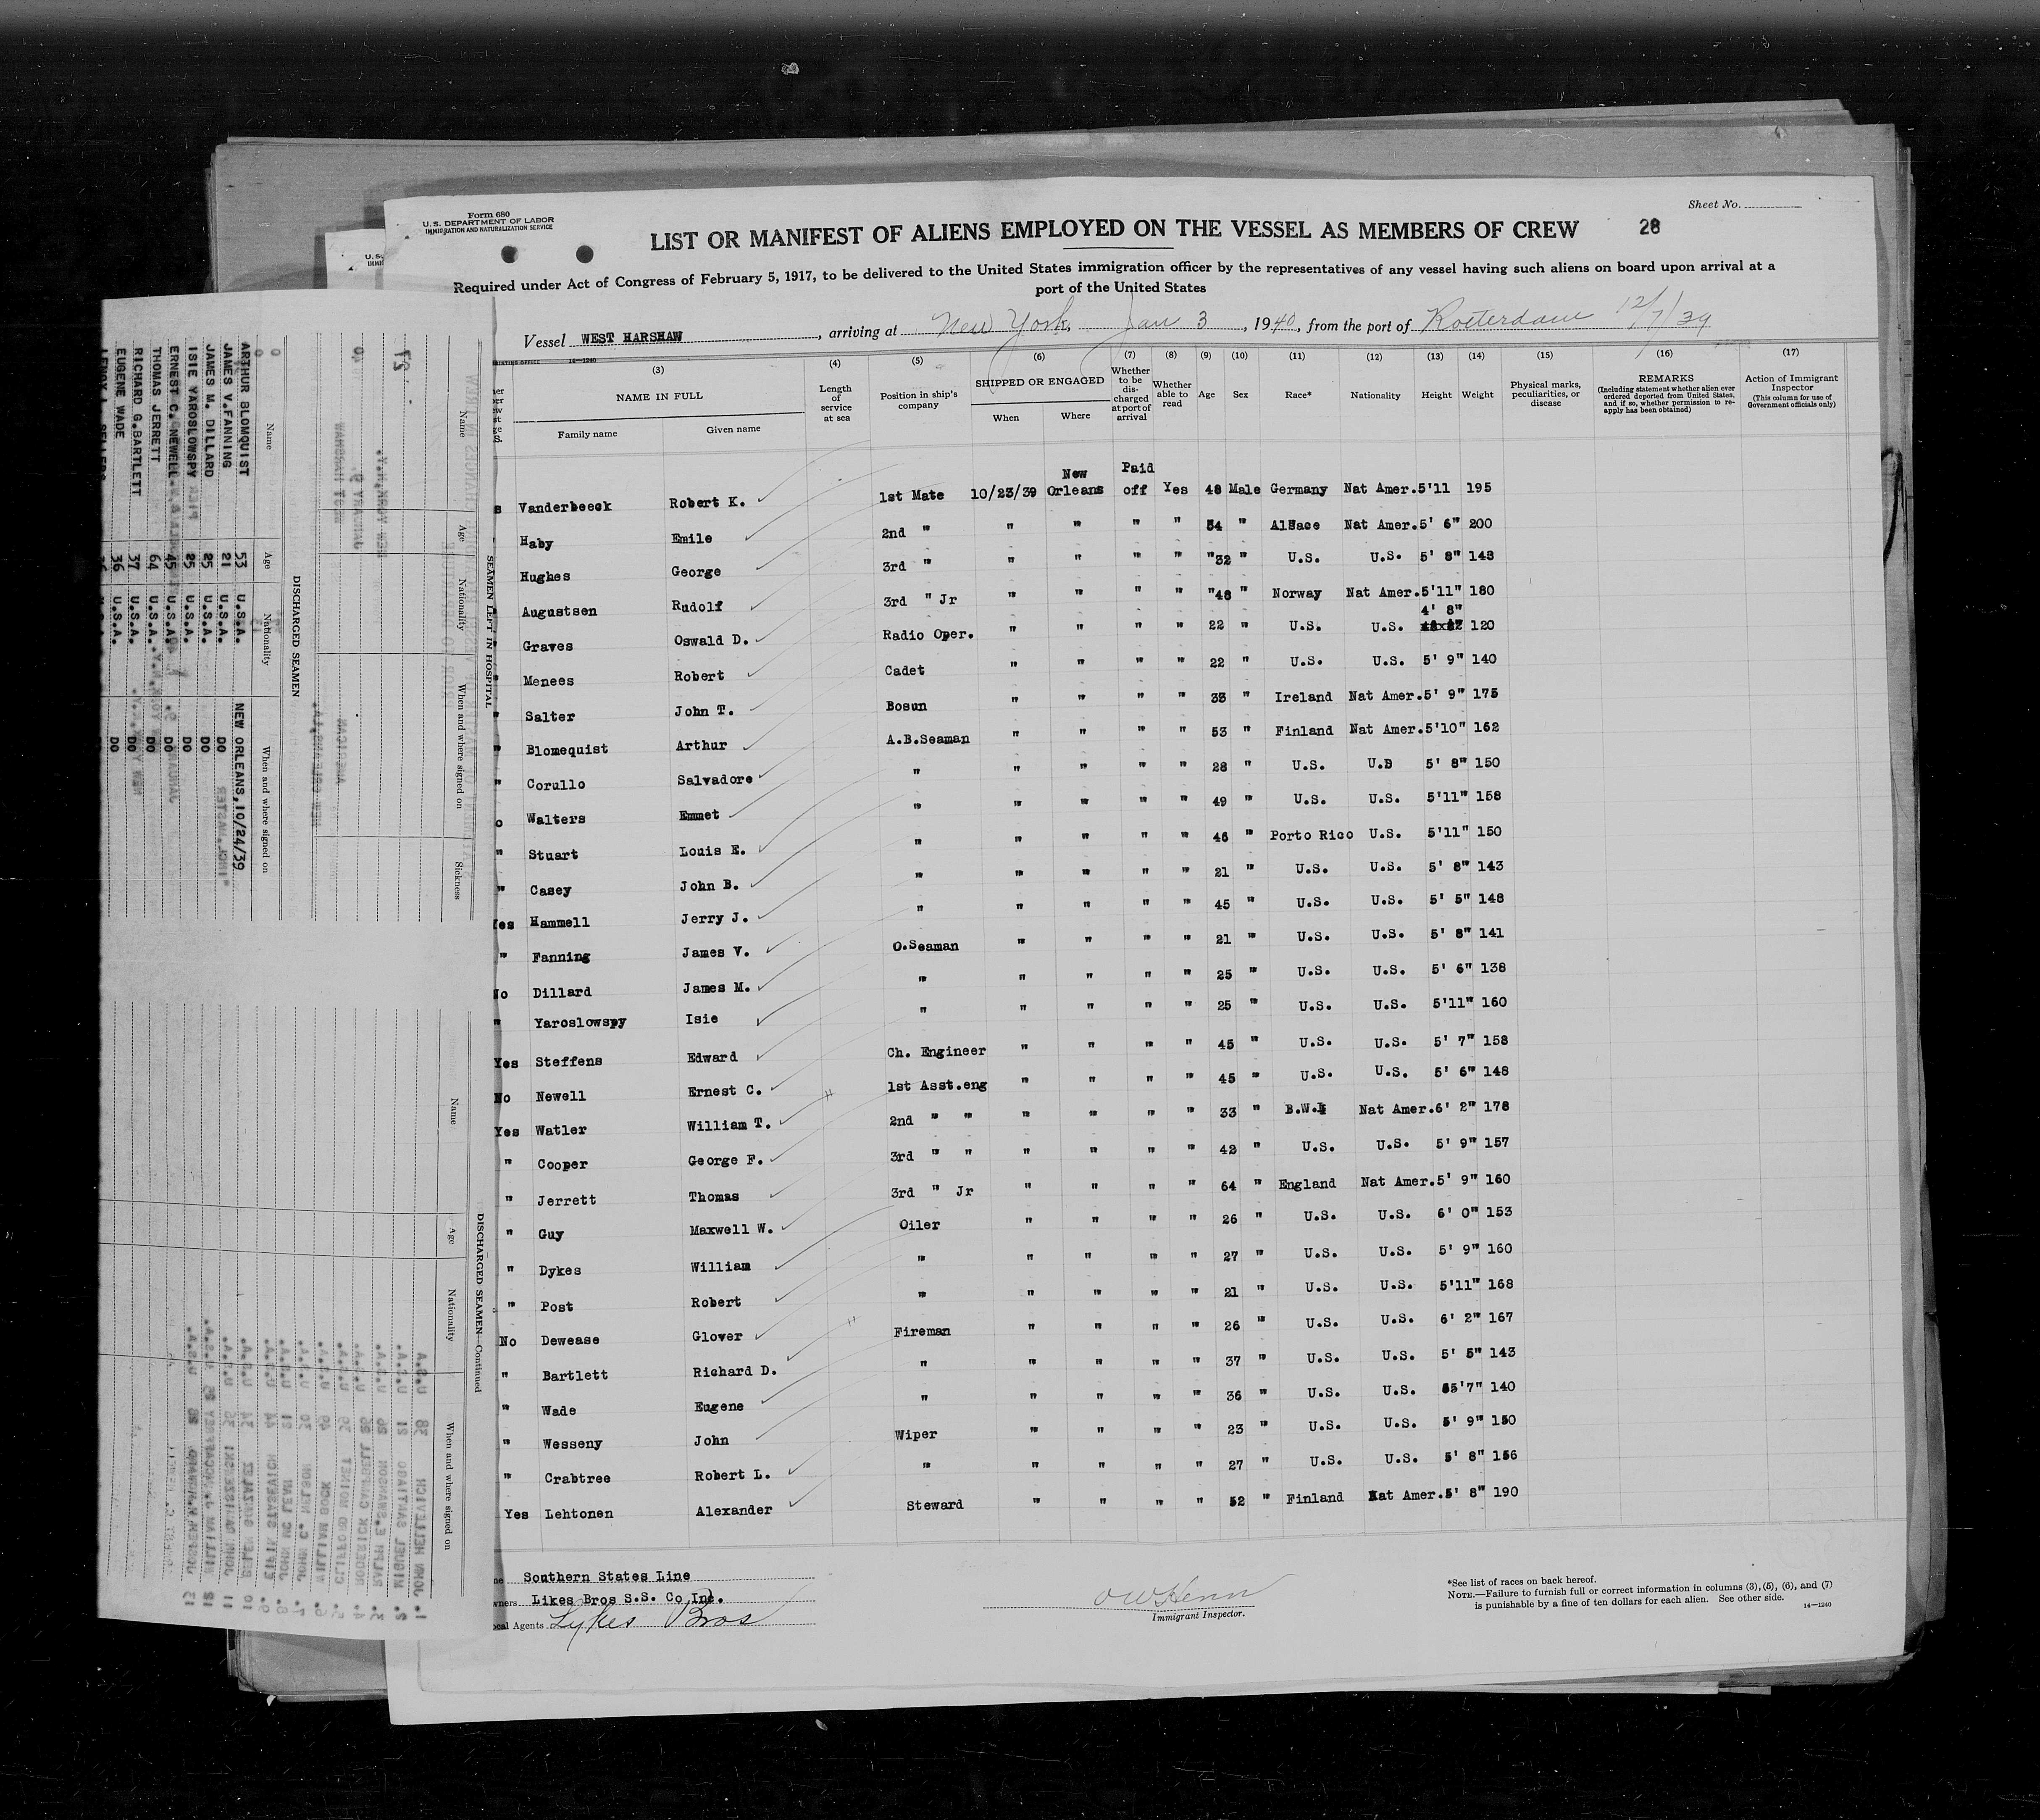 Form 680
U. S. DEPARTMENT OF LABOR
IMMIGRATION AND NATURALIZATION SERVICE
Sheet No.
LIST OR MANIFEST OF ALIENS EMPLOYED ON THE VESSEL AS MEMBERS OF CREW
28
Required under Act of Congress of February 5, 1917, to be delivered to the United States immigration officer by the representatives of any vessel having such aliens on board upon arrival at a
port of the United States
Vessel WEST HARSHAW, arriving at New York, Jan 3, 1940, from the port of Rotterdam 12/7/39
PRINTING OFFICE 14—1240
(3) NAME IN FULL Family name Given name
(4) Length of service at sea
(5) Position in ship's company
(6) SHIPPED OR ENGAGED When Where
(7) Whether to be discharged at port of arrival
(8) Whether able to read
(9) Age
(10) Sex
(11) Race*
(12) Nationality
(13) Height
(14) Weight
(15) Physical marks, peculiarities, or disease
(16) REMARKS (Including statement whether alien ever ordered deported from United States, and if so, whether permission to reapply has been obtained)
(17) Action of Immigrant Inspector (This column for use of Government officials only)
Vanderbeeck Robert K. 1st Mate 10/23/39 New Orleans Paid off Yes 48 Male Germany Nat Amer. 5'11 195
Haby Emile 2nd " " " " " 54 " Alsace Nat Amer. 5' 6" 200
Hughes George 3rd " " " " " 32 " U.S. U.S. 5' 8" 143
Augustsen Rudolf 3rd " Jr " " " " 48 " Norway Nat Amer. 5'11" 180
Graves Oswald D. Radio Oper. " " " " 22 " U.S. U.S. 4' 8" 120
" Menees Robert Cadet " " " " 22 " U.S. U.S. 5' 9" 140
" Salter John T. Bosun " " " " 33 " Ireland Nat Amer. 5' 9" 175
" Blomequist Arthur A.B.Seaman " " " " 53 " Finland Nat Amer. 5'10" 162
" Corullo Salvadore " " " " " 28 " U.S. U.S 5' 8" 150
o Walters Emmet " " " " " 49 " U.S. U.S. 5'11" 158
" Stuart Louis E. " " " " " 46 " Porto Rico U.S. 5'11" 150
" Casey John B. " " " " " 21 " U.S. U.S. 5' 8" 143
Yes Hammell Jerry J. " " " " " 45 " U.S. U.S. 5' 5" 148
" Fanning James V. O.Seaman " " " " 21 " U.S. U.S. 5' 8" 141
No Dillard James M. " " " " " 25 " U.S. U.S. 5' 6" 138
" Yaroslowspy Isie " " " " " 25 " U.S. U.S. 5'11" 160
Yes Steffens Edward Ch. Engineer " " " " 45 " U.S. U.S. 5' 7" 158
No Newell Ernest C. 1st Asst.eng " " " " 45 " U.S. U.S. 5' 6" 148
Yes Watler William T. 2nd " " " " " " 33 " B.W.I Nat Amer. 6' 2" 178
" Cooper George F. 3rd " " " " " " 42 " U.S. U.S. 5' 9" 157
" Jerrett Thomas 3rd " Jr " " " " 64 " England Nat Amer. 5' 9" 160
" Guy Maxwell W. Oiler " " " " 26 " U.S. U.S. 6' 0" 153
" Dykes William " " " " " 27 " U.S. U.S. 5' 9" 160
" Post Robert " " " " " 21 " U.S. U.S. 5'11" 168
No Dewease Glover Fireman " " " " 26 " U.S. U.S. 6' 2" 167
" Bartlett Richard D. " " " " " 37 " U.S. U.S. 5' 5" 143
" Wade Eugene " " " " " 36 " U.S. U.S. 5'7" 140
" Wesseny John Wiper " " " " 23 " U.S. U.S. 5' 9" 150
" Crabtree Robert L. " " " " " 27 " U.S. U.S. 5' 8" 156
Yes Lehtonen Alexander Steward " " " " 52 " Finland Nat Amer. 5' 8" 190
Southern States Line
Likes Bros S.S. Co Inc.
Agents Lykes Bros
Immigrant Inspector.
*See list of races on back hereof.
NOTE.—Failure to furnish full or correct information in columns (3), (5), (6), and (7)
is punishable by a fine of ten dollars for each alien. See other side.
14—1240
SEAMEN LEFT IN HOSPITAL
Name Age Nationality When and where signed on Sickness
DISCHARGED SEAMEN
Name Age Nationality When and where signed on
ARTHUR BLOMQUIST 53 U.S.A. NEW ORLEANS, 10/24/39
JAMES V. FANNING 21 U.S.A. DO
JAMES M. DILLARD 25 U.S.A. DO
ISIE YAROSLOWSPY 25 U.S.A. DO
ERNEST C. NEWELL 45 U.S.A. DO
THOMAS JERRETT 64 U.S.A. DO
RICHARD G. BARTLETT 37 U.S.A. DO
EUGENE WADE 36 U.S.A. DO
DISCHARGED SEAMEN—Continued
Name Age Nationality When and where signed on